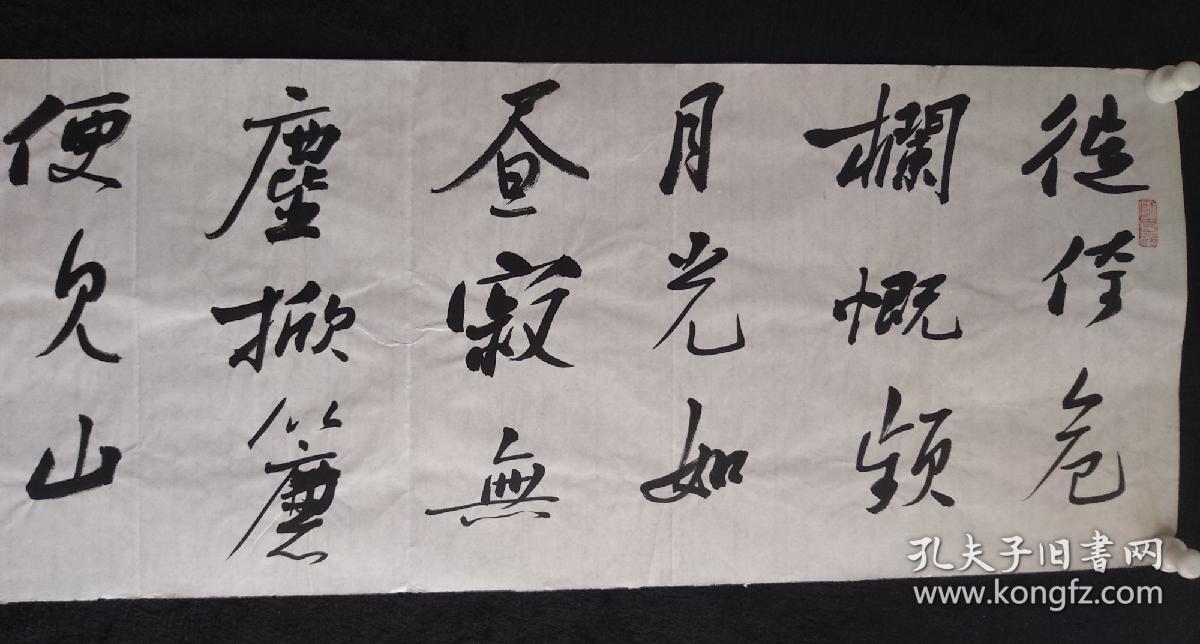 徙倚危
欄慨頻
月光如
昼寂無
塵掀簾
便見山
孔夫子旧書网
www.kongfz.com